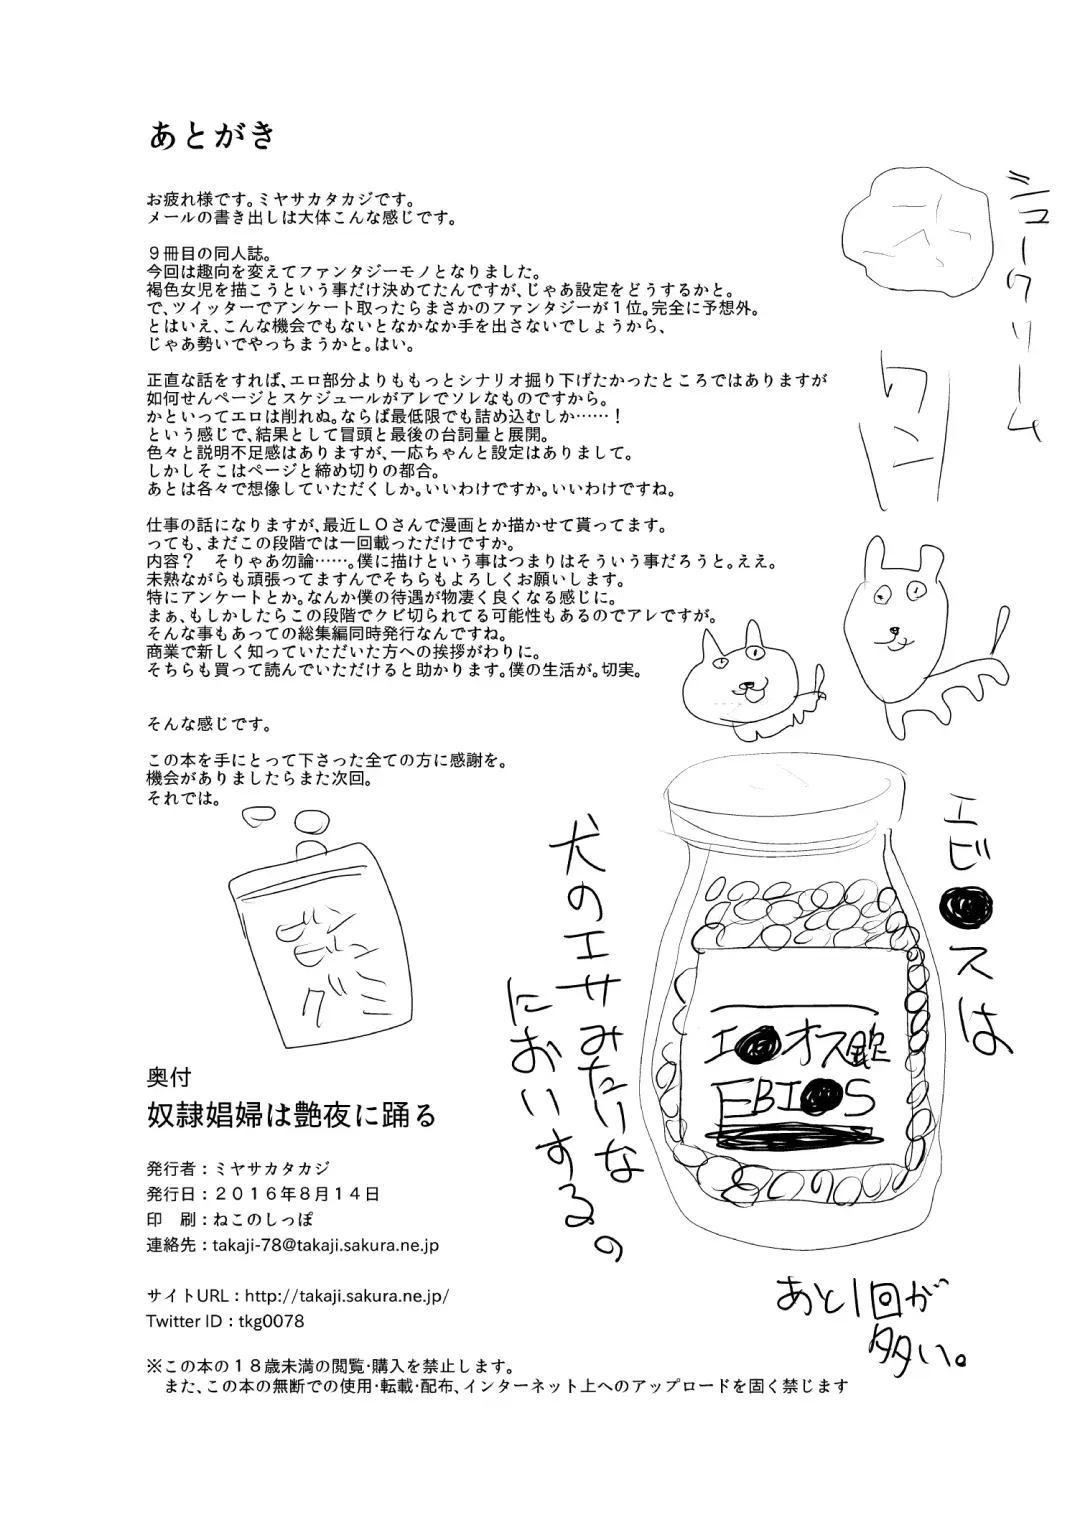 あとがき
お疲れ様です。ミヤサカタカジです。
メールの書き出しは大体こんな感じです。
９冊目の同人誌。
今回は趣向を変えてファンタジーモノとなりました。
褐色女児を描こうという事だけ決めてたんですが、じゃあ設定をどうするかと。
で、ツイッターでアンケート取ったらまさかのファンタジーが１位。完全に予想外。
とはいえ、こんな機会でもないとなかなか手を出さないでしょうから、
じゃあ勢いでやっちまうかと。はい。
正直な話をすれば、エロ部分よりももっとシナリオ掘り下げたかったところではありますが
如何せんページとスケジュールがアレでソレなものですから。
かといってエロは削れぬ。ならば最低限でも詰め込むしか……！
という感じで、結果として冒頭と最後の台詞量と展開。
色々と説明不足感はありますが、一応ちゃんと設定はありまして。
しかしそこはページと締め切りの都合。
あとは各々で想像していただくしか。いいわけですか。いいわけですね。
仕事の話になりますが、最近ＬＯさんで漫画とか描かせて貰ってます。
っても、まだこの段階では一回載っただけですか。
内容？　そりゃあ勿論……。僕に描けという事はつまりはそういう事だろうと。ええ。
未熟ながらも頑張ってますんでそちらもよろしくお願いします。
特にアンケートとか。なんか僕の待遇が物凄く良くなる感じに。
まぁ、もしかしたらこの段階でクビ切られてる可能性もあるのでアレですが。
そんな事もあっての総集編同時発行なんですね。
商業で新しく知っていただいた方への挨拶がわりに。
そちらも買って読んでいただけると助かります。僕の生活が。切実。
そんな感じです。
この本を手にとって下さった全ての方に感謝を。
機会がありましたらまた次回。
それでは。
シュークリーム
ワン
エビ●スは
犬のエサみたいな
においするの
エ●オス錠
EBI●S
あと1回が
多い。
グミ
奥付
奴隷娼婦は艶夜に踊る
発行者：ミヤサカタカジ
発行日：２０１６年８月１４日
印　刷：ねこのしっぽ
連絡先：takaji-78@takaji.sakura.ne.jp
サイトURL：http://takaji.sakura.ne.jp/
Twitter ID：tkg0078
※この本の１８歳未満の閲覧・購入を禁止します。
また、この本の無断での使用・転載・配布、インターネット上へのアップロードを固く禁じます